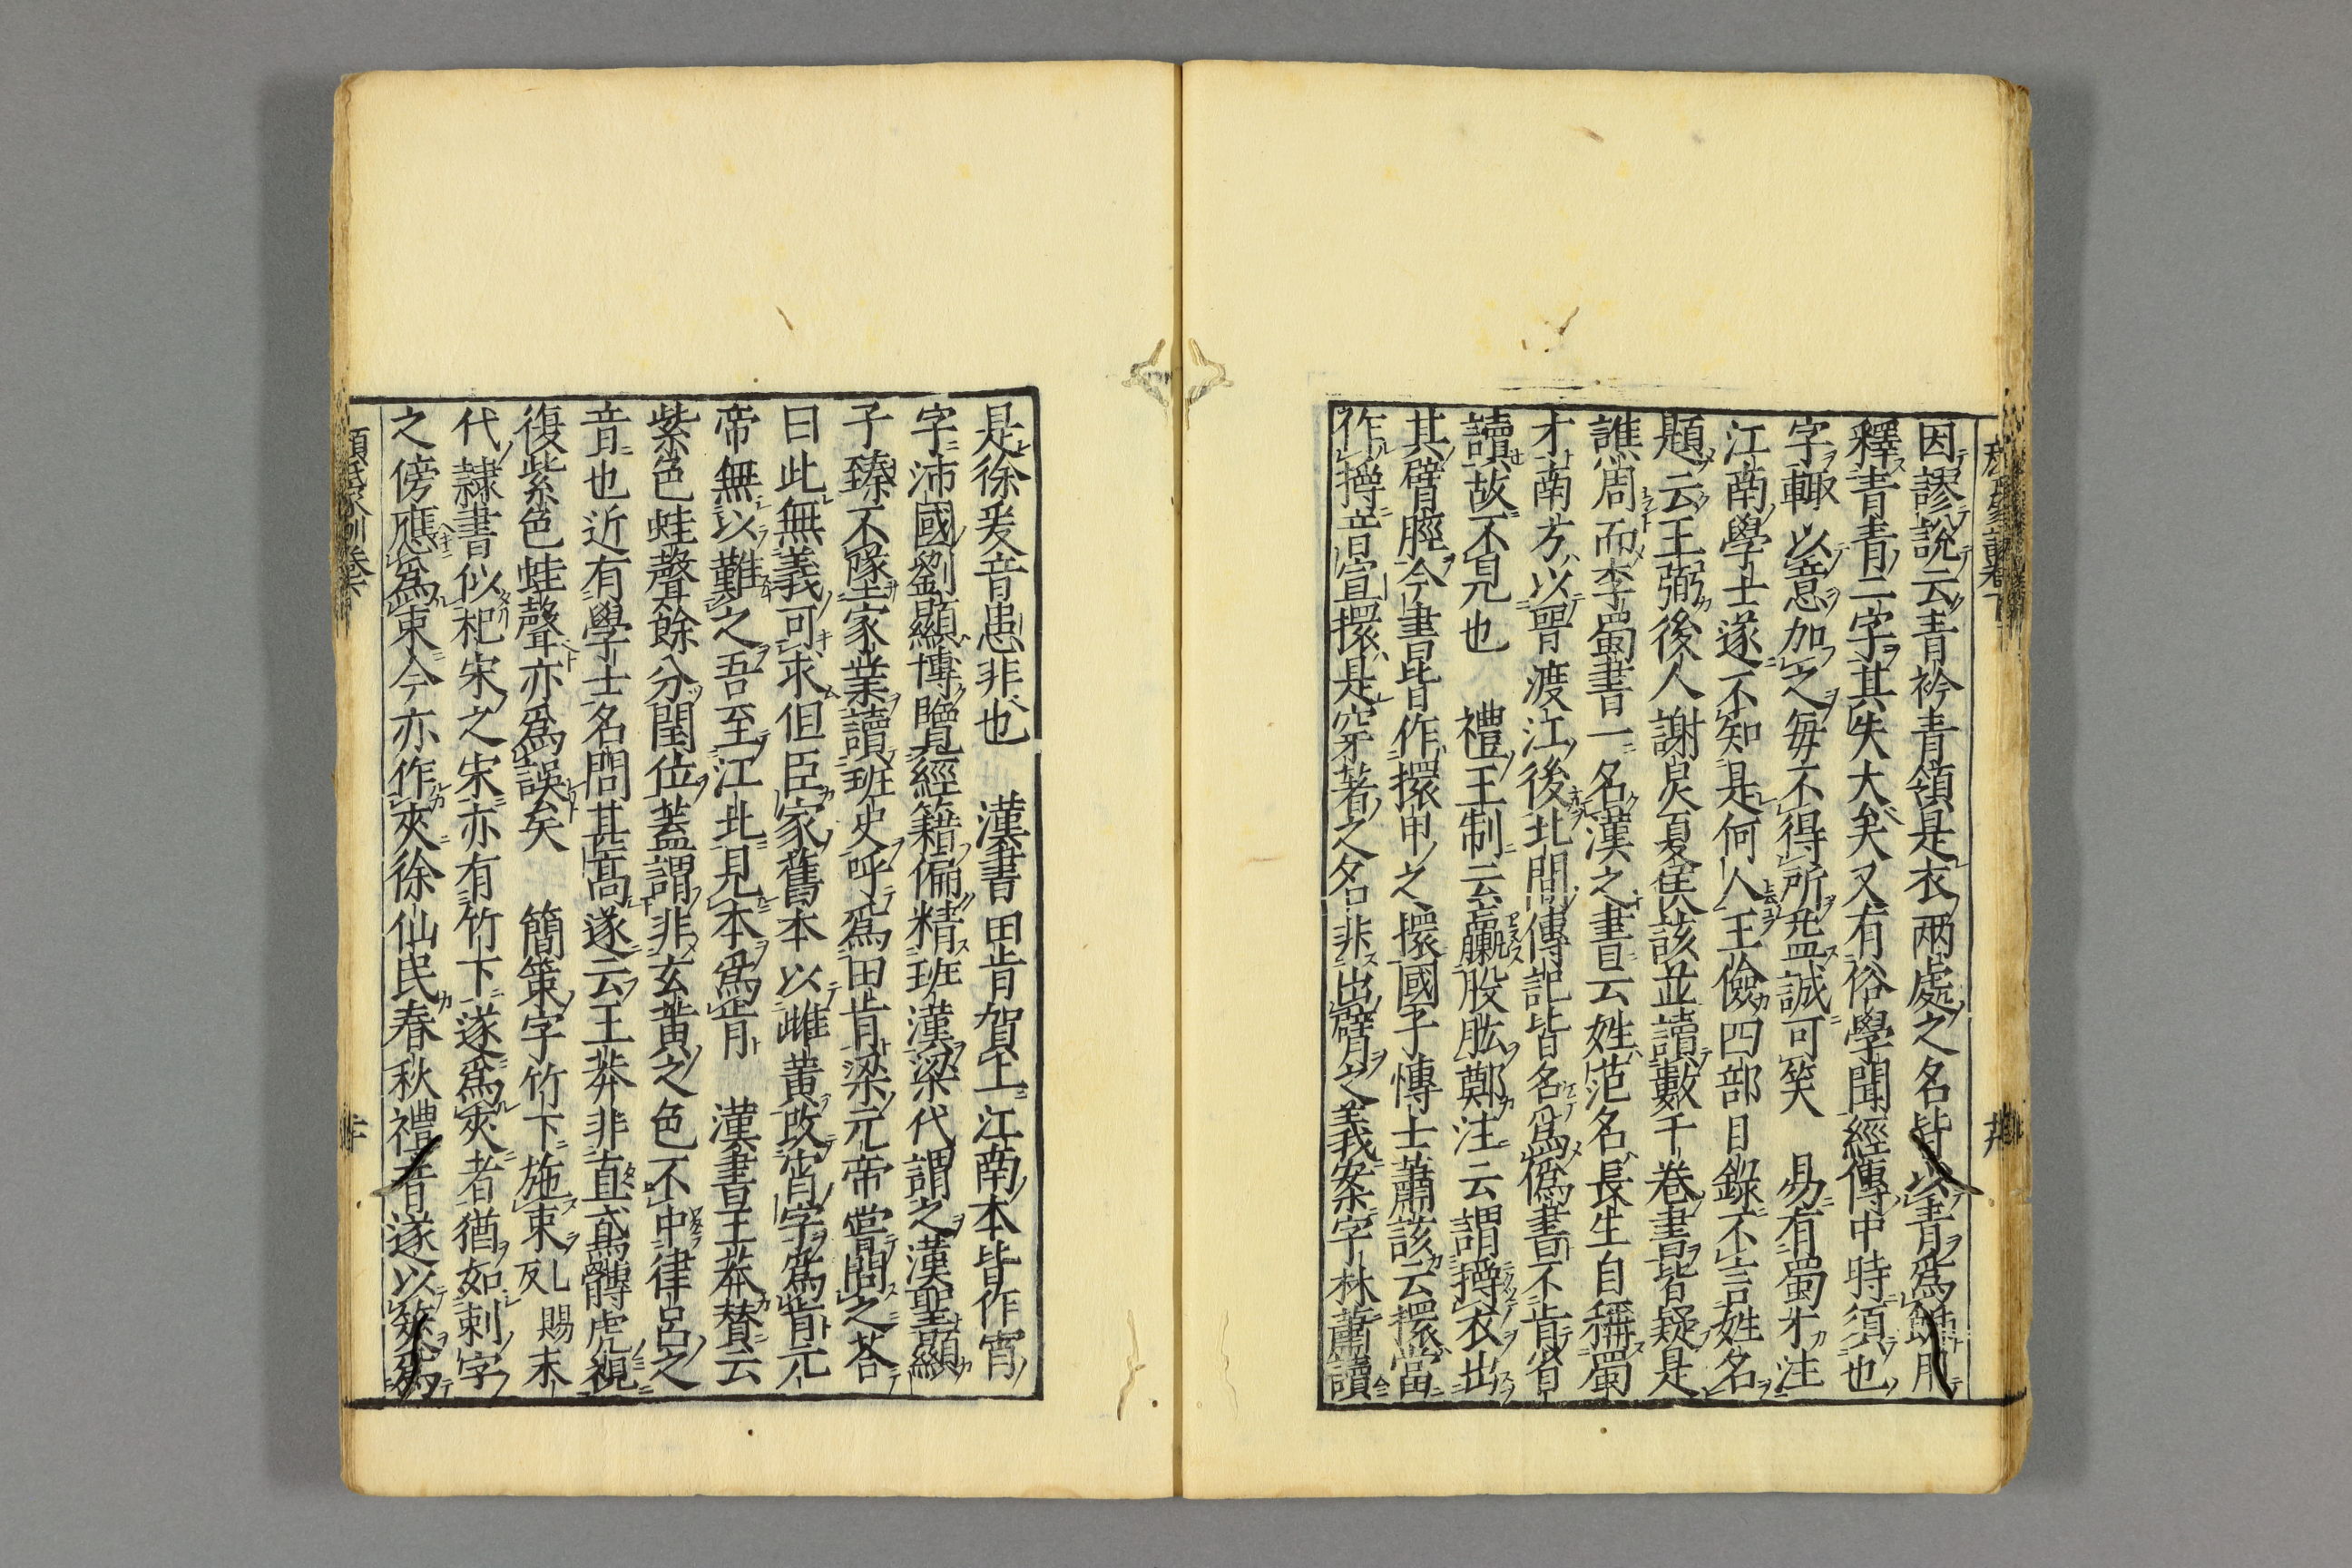 因謬說云青衿青領是衣兩處之名皆以青爲飾用
釋青青二字其失大矣又有俗學聞經傳中時須也
字輒以意加之每不得所益誠可笑　易有蜀才注
江南學士遂不知是何人王儉四部目錄不言姓名
題云王弼後人謝炅夏侯該並讀數千卷書皆疑是
譙周而李蜀書一名漢之書云姓范名長生自稱蜀
才南方以晉渡江後北間傳記皆名爲僞書不肯省
讀故不見也　禮王制云蠃股肱鄭注云謂擐衣出
其臂脛今書皆作擐甲之擐國子博士蕭該云擐當
作揎音宣擐是穿著之名非出臂之義案字林蕭讀
是徐爰音患非也　漢書田肯賀上江南本皆作宵
字沛國劉顯博覽經籍偏精班漢梁代謂之漢聖顯
子臻不墜家業讀班史呼爲田肯梁元帝嘗問之荅
曰此無義可求但臣家舊本以雌黃改宵字爲肯元
帝無以難之吾至江北見本爲肯　漢書王莽賛云
紫色蛙聲餘分閏位蓋謂非玄黃之色不中律呂之
音也近有學士名問甚高遂云王莽非直鳶髆虎視
復紫色蛙聲亦爲誤矣　簡策字竹下施朿反賜末
代隷書似杞宋之宋亦有竹下遂爲夾者猶如刺字
之傍應爲朿今亦作夾徐仙民春秋禮音遂以筴爲
顏氏家訓卷下